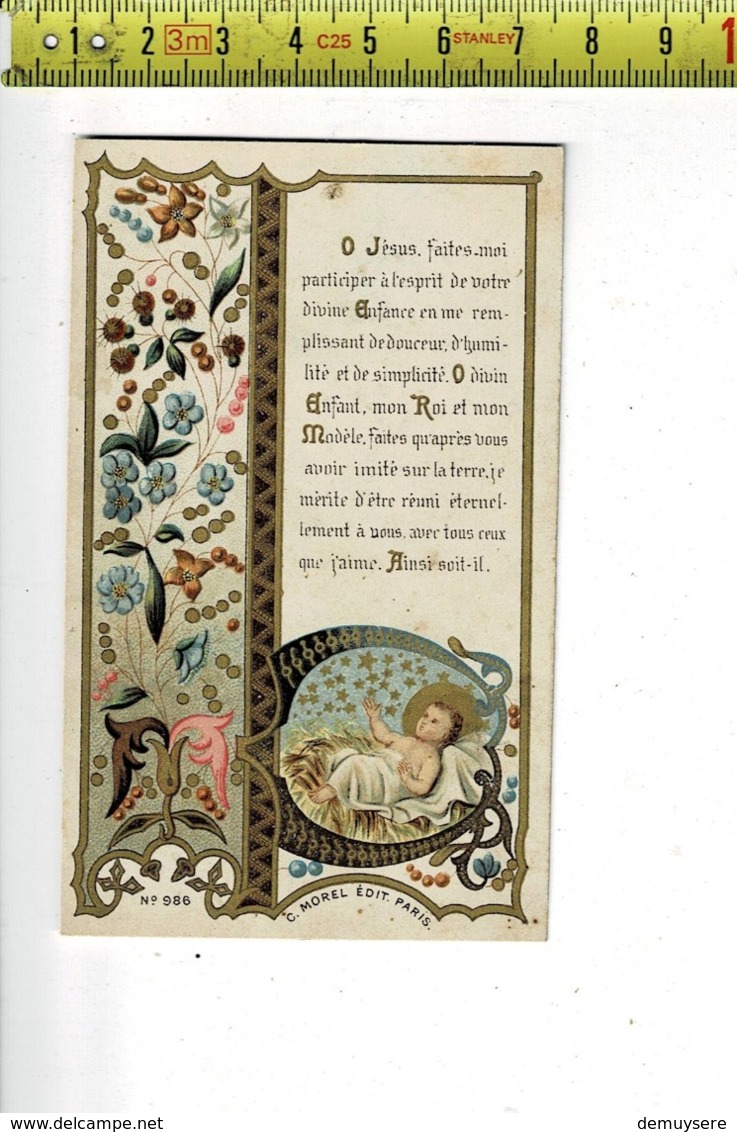 1 2 3m 3 4 C25 5 6 STANLEY 7 8 9 1
O Jésus, faites-moi
participer à l'esprit de votre
divine Enfance en me rem-
plissant de douceur, d'humi-
lité et de simplicité. O divin
Enfant, mon Roi et mon
Modèle, faites qu'après vous
avoir imité sur la terre, je
mérite d'être réuni éternel-
lement à vous, avec tous ceux
que j'aime. Ainsi soit-il.
Nº 986
C. MOREL ÉDIT. PARIS.
delcampe.net
demuysere